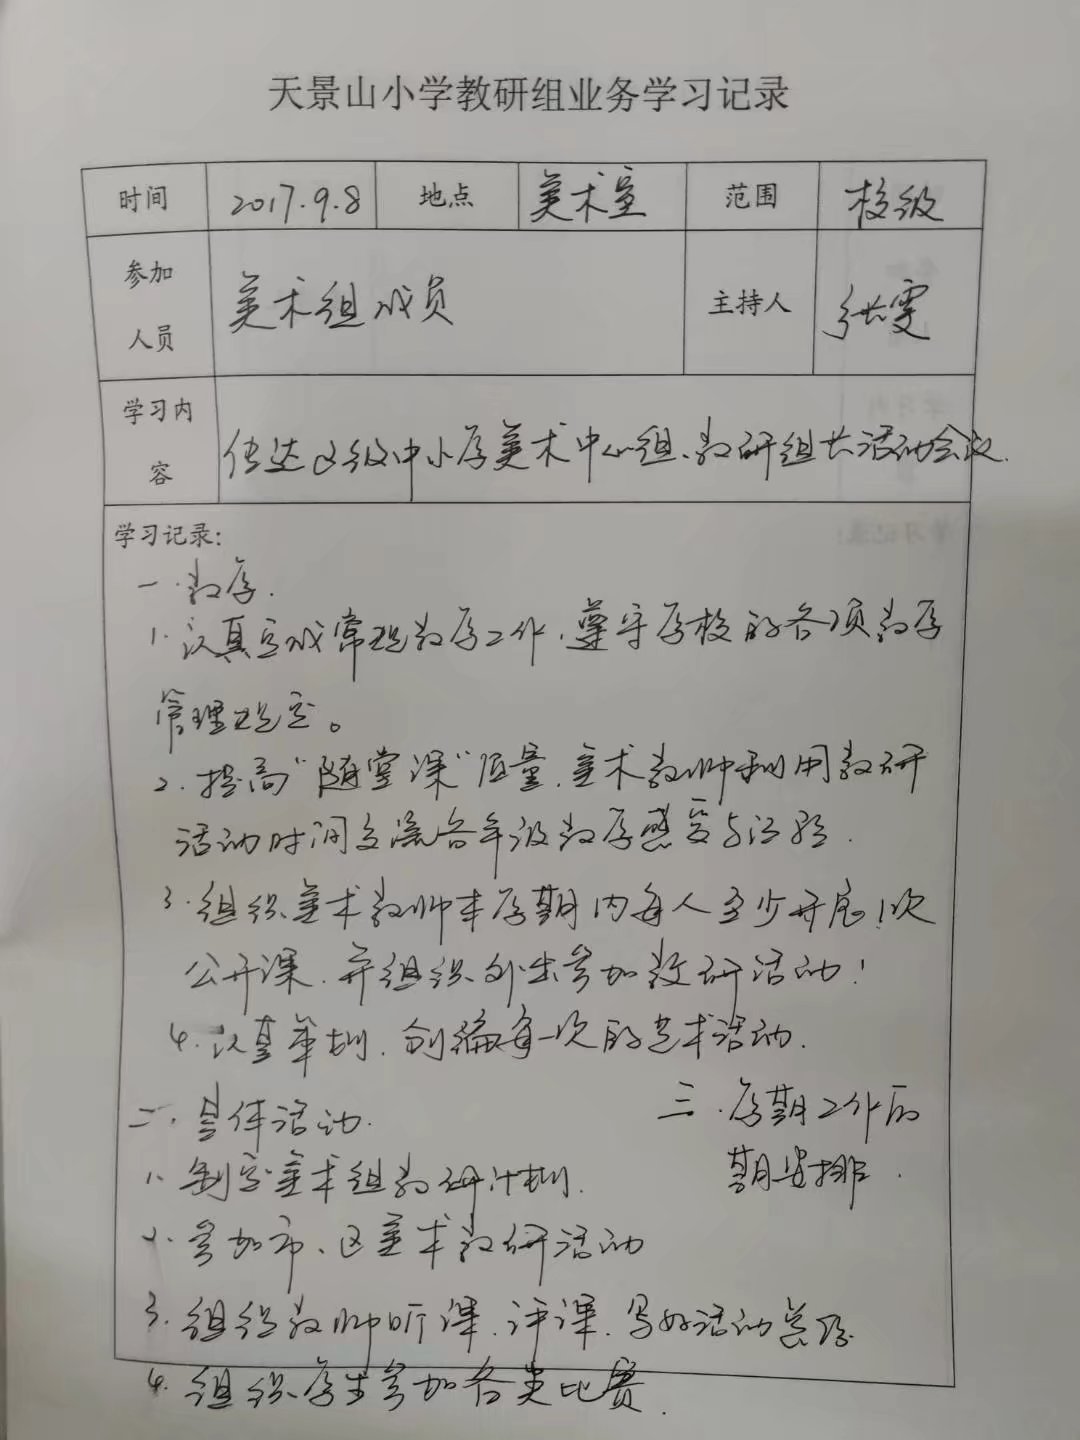 天景山小学教研组业务学习记录
时间 2017.9.8 地点 美术室 范围 校级
参加人员 美术组成员 主持人 张雯
学习内容 传达区级中小学美术中心组、教研组长活动会议.
学习记录:
一.教学.
1.认真完成常规教学工作.遵守学校的各项教学
管理规定。
2.提高"随堂课"质量.美术教师利用教研
活动时间交流各年级教学感受与经验.
3.组织美术教师本学期内每人至少开展1次
公开课.并组织外出参加教研活动!
4.认真筹划.创编每一次的艺术活动.
二.具体活动.
1.制定美术组教研计划.
2.参加市、区美术教研活动
3.组织教师听课.评课.写好活动总结
4.组织学生参加各类比赛.
三.学期工作后
期安排.